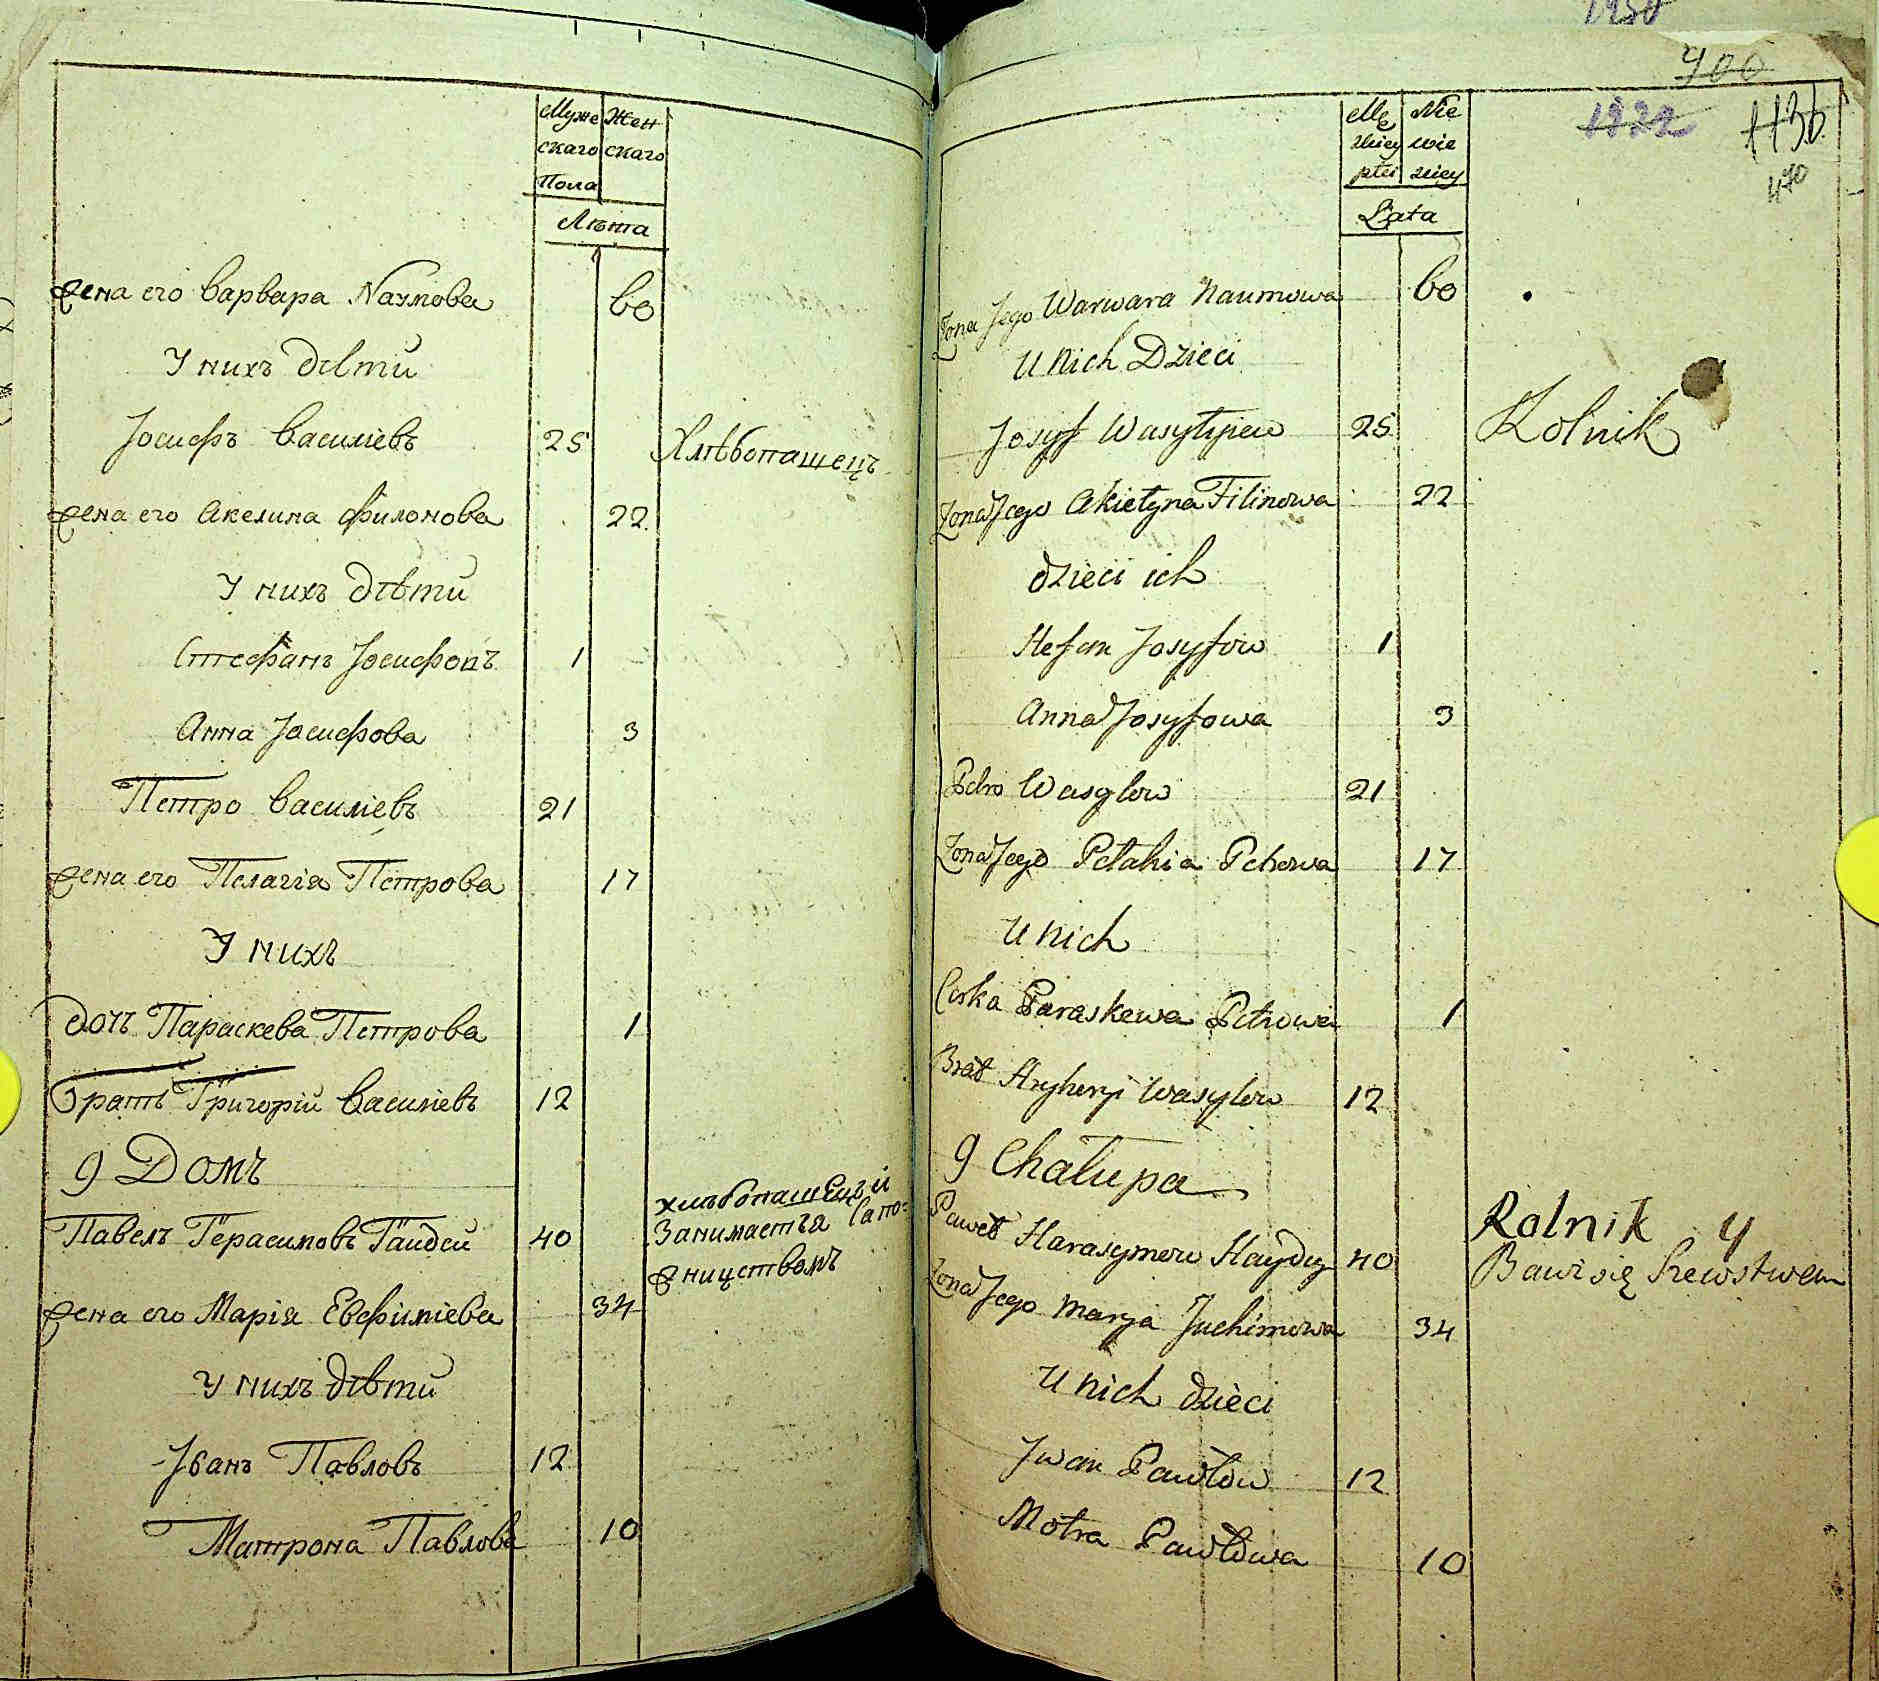 Муже Жен
скаго скаго
Пола
Лѣта
жена его Варвара Наумова 60
У нихъ дѣти
Іосифъ Василіевъ 25 Хлѣбопашецъ
жена его Акелина Филонова 22
У нихъ дѣти
Стефанъ Іосифовъ 1
Анна Іосифова 3
Петро Василіевъ 21
жена его Пелагія Петрова 17
У нихъ
дочь Параскева Петрова 1
Братъ Григорій Василіевъ 12
9 Домъ
Павелъ Герасимовъ Гайдей 40 хлѣбопашецъ и
занимается сапо=
жництвомъ
жена его Марія Евфиміева 34
У нихъ дѣти
Іванъ Павловъ 12
Матрона Павлова 10
400
1922 1136
470
Mę Nie
zkiey wie
płci ściey
Lata
Żona Jego Warwara Naumowa 60
U nich Dzieci
Josyf Wasylyiew 25 Rolnik
Żona Jego Akielyna Filinowa 22
dzieci ich
Stefan Josyfow 1
Anna Josyfowa 3
Petro Wasylow 21
Żona Jego Pelahia Petrowa 17
U nich
Corka Paraskewa Petrowa 1
Brat Hryhoryi Wasylow 12
9 Chałupa
Paweł Harasymow Haydey 40 Rolnik y
Bawi się Szewstwem
Żona Jego Marya Juchimowa 34
U nich dzieci
Iwan Pawłow 12
Motra Pawłowa 10